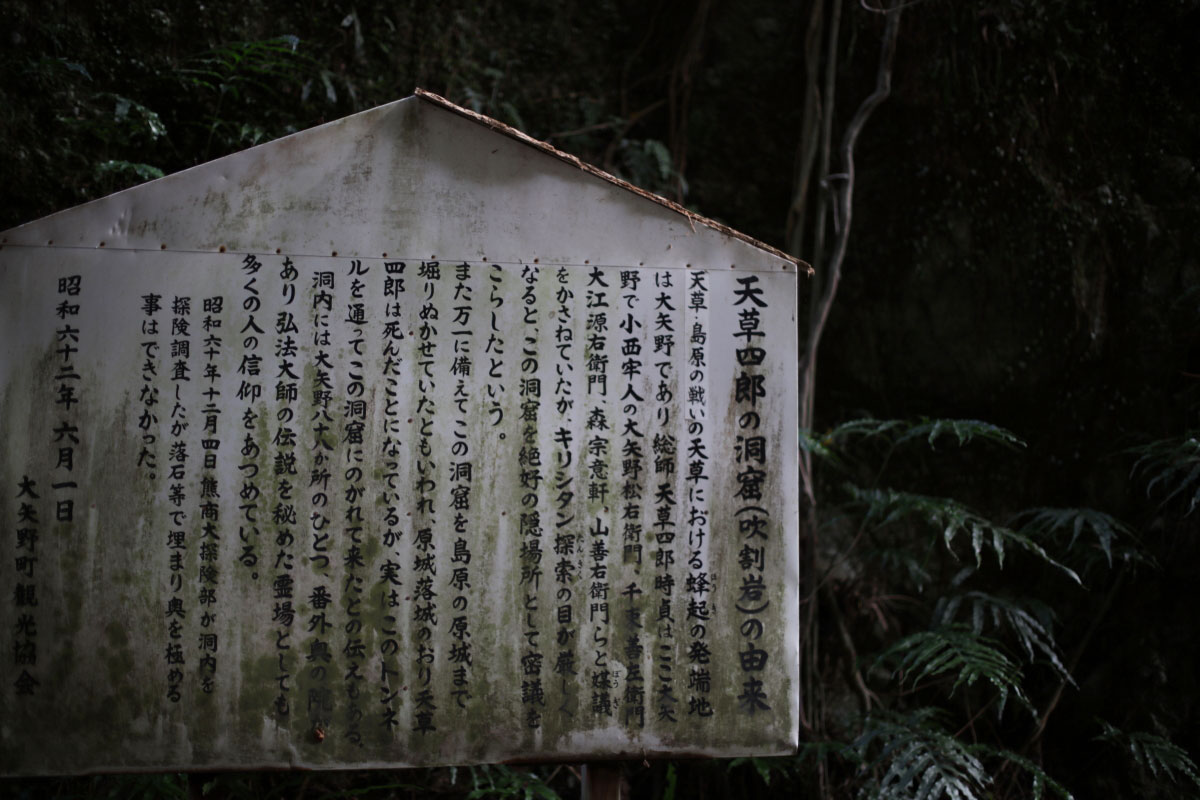 天草四郎の洞窟(吹割岩)の由来
天草・島原の戦いの天草における蜂起の発端地
は大矢野であり総師 天草四郎時貞はここ大矢
野で小西牢人の大矢野松右衛門、千束善左衛門
大江源右衛門、森宗意軒、山善右衛門らと媒議
をかさねていたが、キリシタン探索の目が厳しく
なると、この洞窟を絶好の隠場所として密議を
こらしたという。
また万一に備えてこの洞窟を島原の原城まで
堀りぬかせていたともいわれ、原城落城のおり天草
四郎は死んだことになっているが、実はこのトンネ
ルを通ってこの洞窟にのがれて来たとの伝えもある。
洞内には大矢野八十八か所のひとつ、番外奥の院
あり弘法大師の伝説を秘めた霊場としても
多くの人の信仰をあつめている。
昭和六十年十二月四日 熊商大探険部が洞内を
探険調査したが落石等で埋まり奥を極める
事はできなかった。
昭和六十二年六月一日
大矢野町観光協会